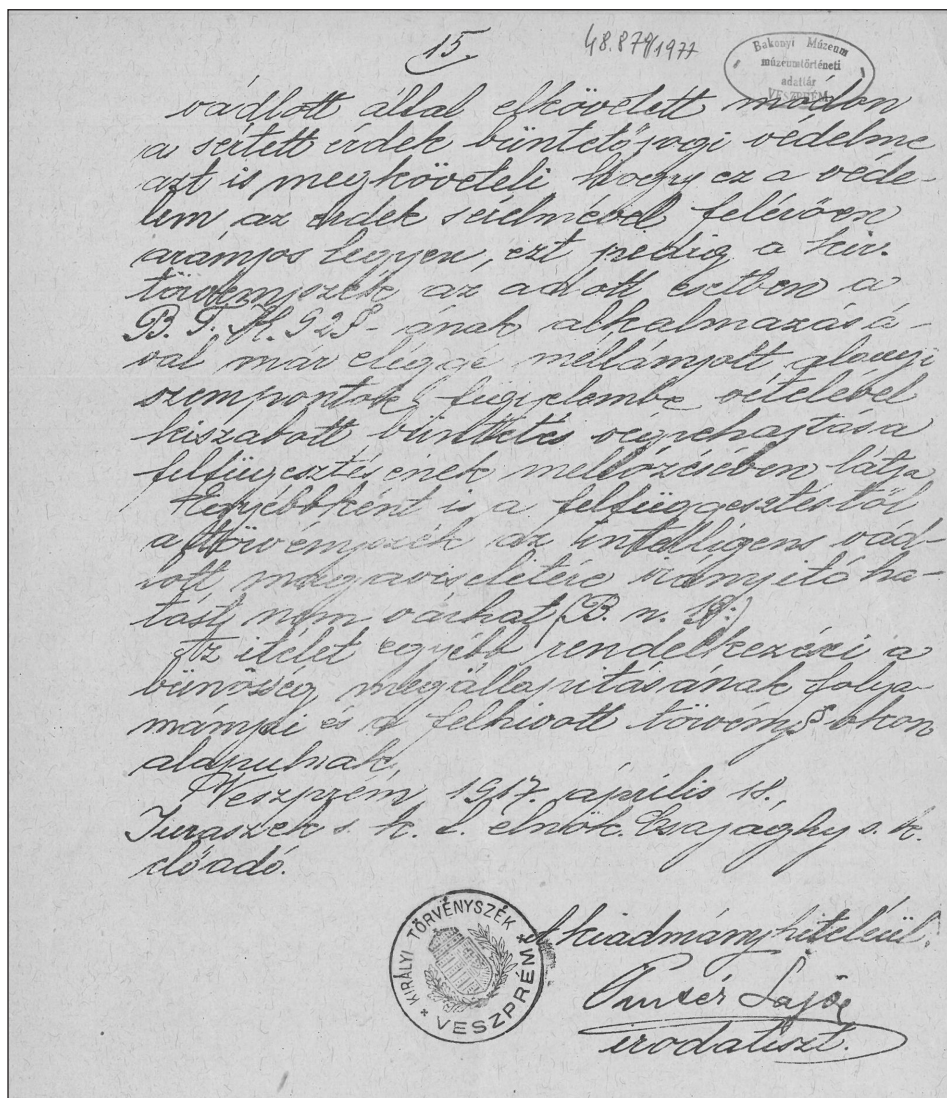 15.
48.879/1977
Bakonyi Múzeum
múzeumtörténeti
adattár
VESZPRÉM
vádlott által elkövetett módon
a sértett érdek büntetőjogi védelme
azt is megköveteli hogy ez a véde-
lem az érdek sérelmével felérően
arányos legyen, ezt pedig a kir.
törvényszék az adott esetben a
B. T. K. 92§-ának alkalmazásá-
val már eléggé méltányolt alanyi
szempontok figyelembe vételével
kiszabott büntetés végrehajtása
felfügesztésének mellőzésében látja
Egyébbként is a felfüggesztéstől
a törvényszék az intelligens vád-
lott magaviseletére irányító ha-
tást nem várhat (B. n. 1§.)
Az itélet egyébb rendelkezései a
bünösség megállapitásának folyo-
mányai és a felhivott törvény§-okon
alapulnak,
Veszprém, 1917. április 18.,
Juraszek s. k. t. elnök. Csajághy s. k.
előadó.
A kiadmány hiteléül:
Lajos
irodatiszt.
* KIRÁLYI TÖRVÉNYSZÉK * VESZPRÉM